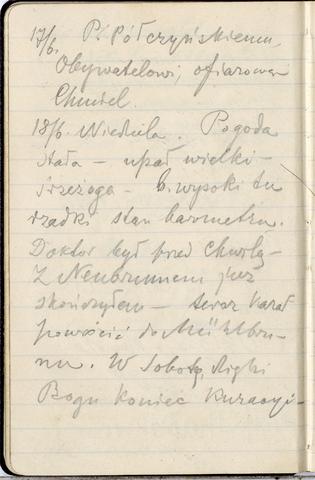 17/6. P. Półczyńskiemu,
Obywatelowi, ofiarowan
Chmiel.
18/6. Niedziela. Pogoda
stała – upał wielki –
Srzeżoga – b. wysoki tu
rzadki stan barometru.
Doktór był przed chwilą –
Z Neubrunnem już
skończyłem – teraz kazał
powrócić do Mühlbru-
nnu. W Sobotę, dzięki
Bogu koniec kuracyi –